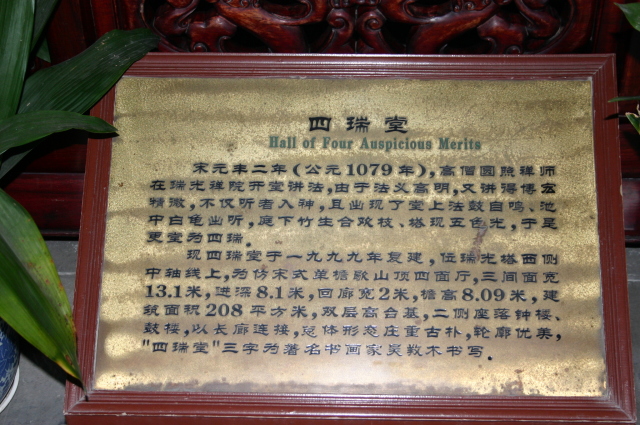 四瑞堂
Hall of Four Auspicious Merits
宋元丰二年(公元1079年),高僧圆照禅师
在瑞光禅院开堂讲法,由于法义高明,又讲得博宏
精微,不仅听者入神,且出现了堂上法鼓自鸣、池
中白龟出听,庭下竹生合欢枝、塔现五色光,于是
更堂为四瑞.
现四瑞堂于一九九九年复建,位瑞光塔西侧
中轴线上,为仿宋式单檐歇山顶四面厅,三间面宽
13.1米,进深8.1米,回廊宽2米,檐高8.09米,建
筑面积208平方米,双层高台基,二侧座落钟楼、
鼓楼,以长廊连接,总体形态庄重古朴,轮廓优美,
"四瑞堂"三字为著名书画家吴敎木书写.